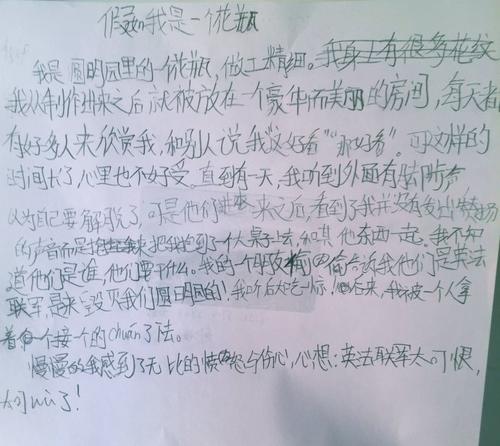 假如我是一个花瓶
我是圆明园里的一个花瓶，做工精细。我身上有很多花纹
我从制作出来之后就被放在一个豪华而美丽的房间，每天都
有好多人来欣赏我，和别人说我"这好看""那好看"。可这样的
时间长了心里也不好受。直到有一天，我听到外面有脚步声
以为自己要解脱了，可是他们进来之后，看到了我并没有发出
的声音而是把我抢到了一个人桌子上去，和其他东西一起。我不知
道他们是谁，他们要干什么。我的一个朋友偷偷告诉我他们是英法
联军，是来毁灭我们圆明园的！我听后大吃一惊！后来，我被一个人拿
着一个接一个的chuán了下去。
慢慢的我感到了无比的愤怒与伤心，心想：英法联军太可恨，
太可wù了！